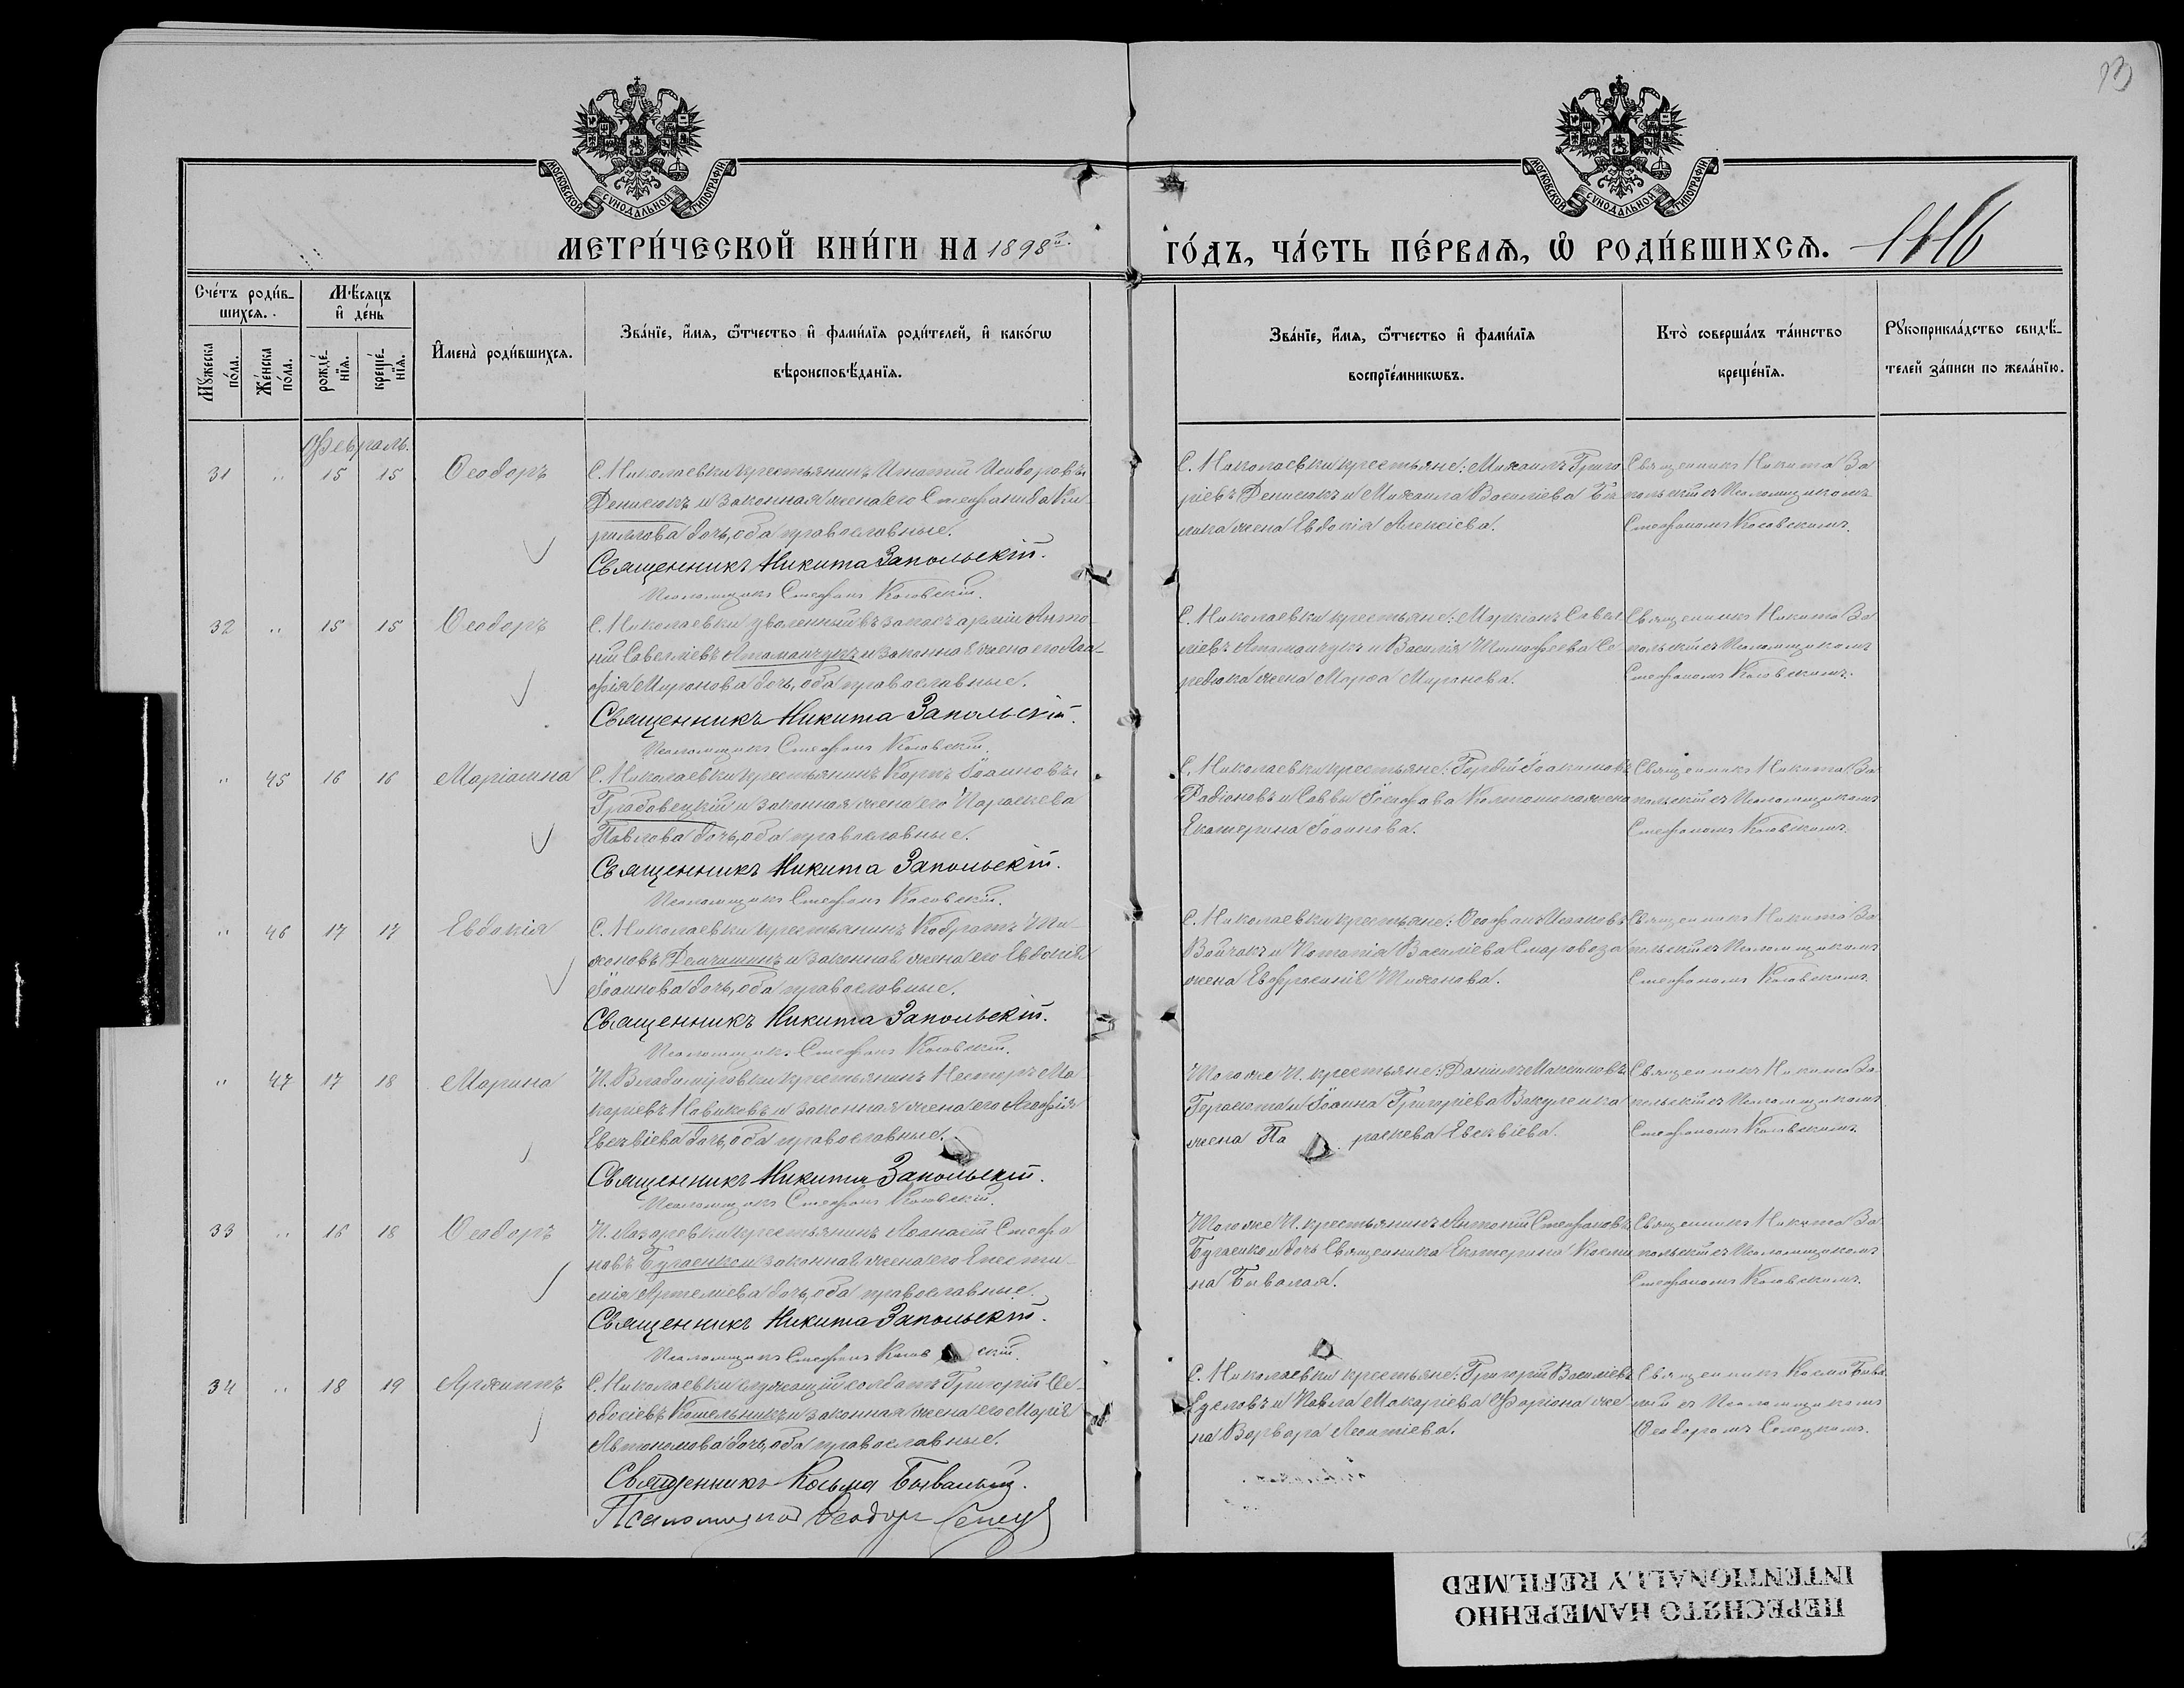 13
МОСКОВСКОЙ СѴНОДАЛЬНОЙ ТИПОГРАФІИ
МОСКОВСКОЙ СѴНОДАЛЬНОЙ ТИПОГРАФІИ
МЕТРИ́ЧЕСКОЙ КНИ́ГИ НА 1898й.
ГО́ДЪ, ЧА́СТЬ ПЕ́РВАЯ, Ѽ РОДИ́ВШИХСЯ. 1116
Сче́тъ роди́вшихся.
Мѣ́сяцъ и҆ де́нь
Мꙋ́жеска по́ла.
Же́нска по́ла.
рожде́нїя.
креще́нїя.
И҆мена̀ роди́вшихся.
Зва́нїе, и҆́мя, ѻ҆́тчество и҆ фами́лїя роди́телей, и҆ како́гѡ
вѣроисповѣ́данїя.
Зва́нїе, и҆́мя, ѻ҆́тчество и҆ фами́лїя
воспрїе́мникѡвъ.
Кто̀ соверша́лъ та́инство
креще́нїя.
Рꙋкоприкла́дство свидѣ́-
телей за́писи по жела́нїю.
Февраль.
31 " 15 15 Ѳеодоръ
С. Николаевки крестьянинъ Игнатій Исидоровъ
Денисюкъ и законная жена его Стефанида Ки-
риллова дочь, оба православные.
Священникъ Никита Запольскій.
Псаломщикъ Стефанъ Косовскій.
С. Николаевки крестьяне: Михаилъ Григо
ріевъ Денисюкъ и Михаила Василіева
жена Евдокія Алексіева.
Священникъ Никита За
польскій съ Псаломщикомъ
Стефаномъ Косовскимъ.
32 " 15 15 Ѳеодоръ
С. Николаевки уволенный въ запасъ арміи Анто-
ній Савелліевъ Атаманчукъ и законная жена его Ага-
фія Миронова дочь, оба православные.
Священникъ Никита Запольскій.
Псаломщикъ Стефанъ Косовскій.
С. Николаевки крестьяне: Маркіанъ Савел
ліевъ Атаманчукъ и Василія Тимофеева Се-
редюка жена Марѳа Миронова.
Священникъ Никита За
польскій съ Псаломщикомъ
Стефаномъ Косовскимъ.
" 45 16 16 Маріамна
С. Николаевки крестьянинъ Карпъ Іоанновъ
Грабовецкій и законная жена его Параскева
Павлова дочь, оба православные.
Священникъ Никита Запольскій.
Псаломщикъ Стефанъ Косовскій.
С. Николаевки крестьяне: Гордій Іоакимовъ
Радіоновъ и Саввы Іосифова жена
Екатерина Іоаннова.
Священникъ Никита За
польскій съ Псаломщикомъ
Стефаномъ Косовскимъ.
" 46 17 17 Евдокія
С. Николаевки крестьянинъ Кодратъ Ти-
хоновъ Демчишинъ и законная жена его Евдокія
Іоаннова дочь, оба православные.
Священникъ Никита Запольскій.
Псаломщикъ Стефанъ Косовскій.
С. Николаевки крестьяне: Ѳеофанъ Исааковъ
Войчакъ и Потапія Василіева Старовоза
жена Евфросинія Тихонова.
Священникъ Никита За
польскій съ Псаломщикомъ
Стефаномъ Косовскимъ.
" 47 17 18 Марина
П. Владиміровки крестьянинъ Несторъ Ма
каріевъ Новиковъ и законная жена его Агафія
Евсевіева дочь, оба православные.
Священникъ Никита Запольскій.
Псаломщикъ Стефанъ Косовскій.
Того же П. крестьяне: Даніилъ Максимовъ
Герасюта и Іоанна Григоріева Вакуленка
жена Па раскева Евсевіева.
Священникъ Никита За
польскій съ Псаломщикомъ
Стефаномъ Косовскимъ.
33 " 16 18 Ѳеодоръ
П. Лазаревки крестьянинъ Аѳанасій Стефа
новъ Бугаенко и законная жена его Епести-
мія Артеміева дочь, оба православные.
Священникъ Никита Запольскій.
Псаломщикъ Стефанъ Косов скій.
Того же П. крестьянинъ Антоній Стефановъ
Бугаенко и дочь Священника Екатерина Косми
на Бывалая.
Священникъ Никита За
польскій съ Псаломщикомъ
Стефаномъ Косовскимъ.
34 " 18 19 Архиппъ
С. Николаевки служащій солдатъ Григорій Ѳе-
одосіевъ Кошельникъ и законная жена его Марія
Автономова дочь, оба православные.
Священникъ Косьма Бывалый.
Псаломщикъ Ѳеодоръ
С. Николаевки крестьяне: Григорій Василіевъ
и Павла Макаріева Фаріона же
на Варвара Леонтіева.
Священникъ Косма Быва
лый съ Псаломщикомъ
Ѳеодоромъ Сенецкимъ.
ПЕРЕСНЯТО НАМЕРЕННО
INTENTIONALLY REFILMED